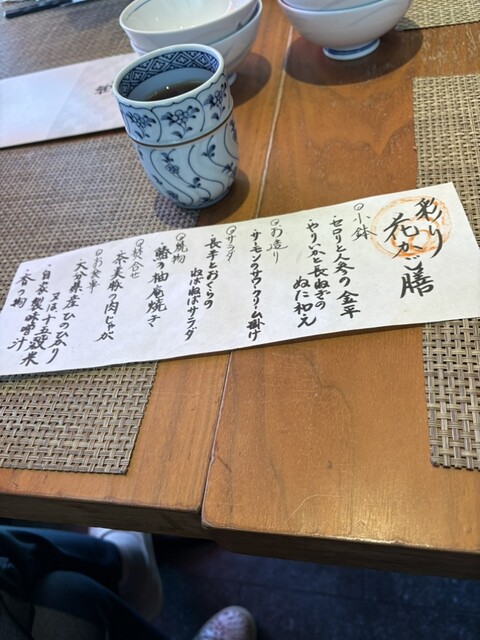 彩り
花かご膳
◎小鉢
・セロリと人参の金平
・やりいかと長ねぎの
ぬた和え
◎お造り
・サーモンのサワクリーム掛け
◎サラダ
・長芋とおくらの
ねばねばサラダ
◎焼物
・鰆の柚庵焼き
◎炊合せ
・茶美豚の肉じゃが
◎お食事
・大分県産ひのひかり
又は、十五穀米
・自家製味噌汁
・香の物